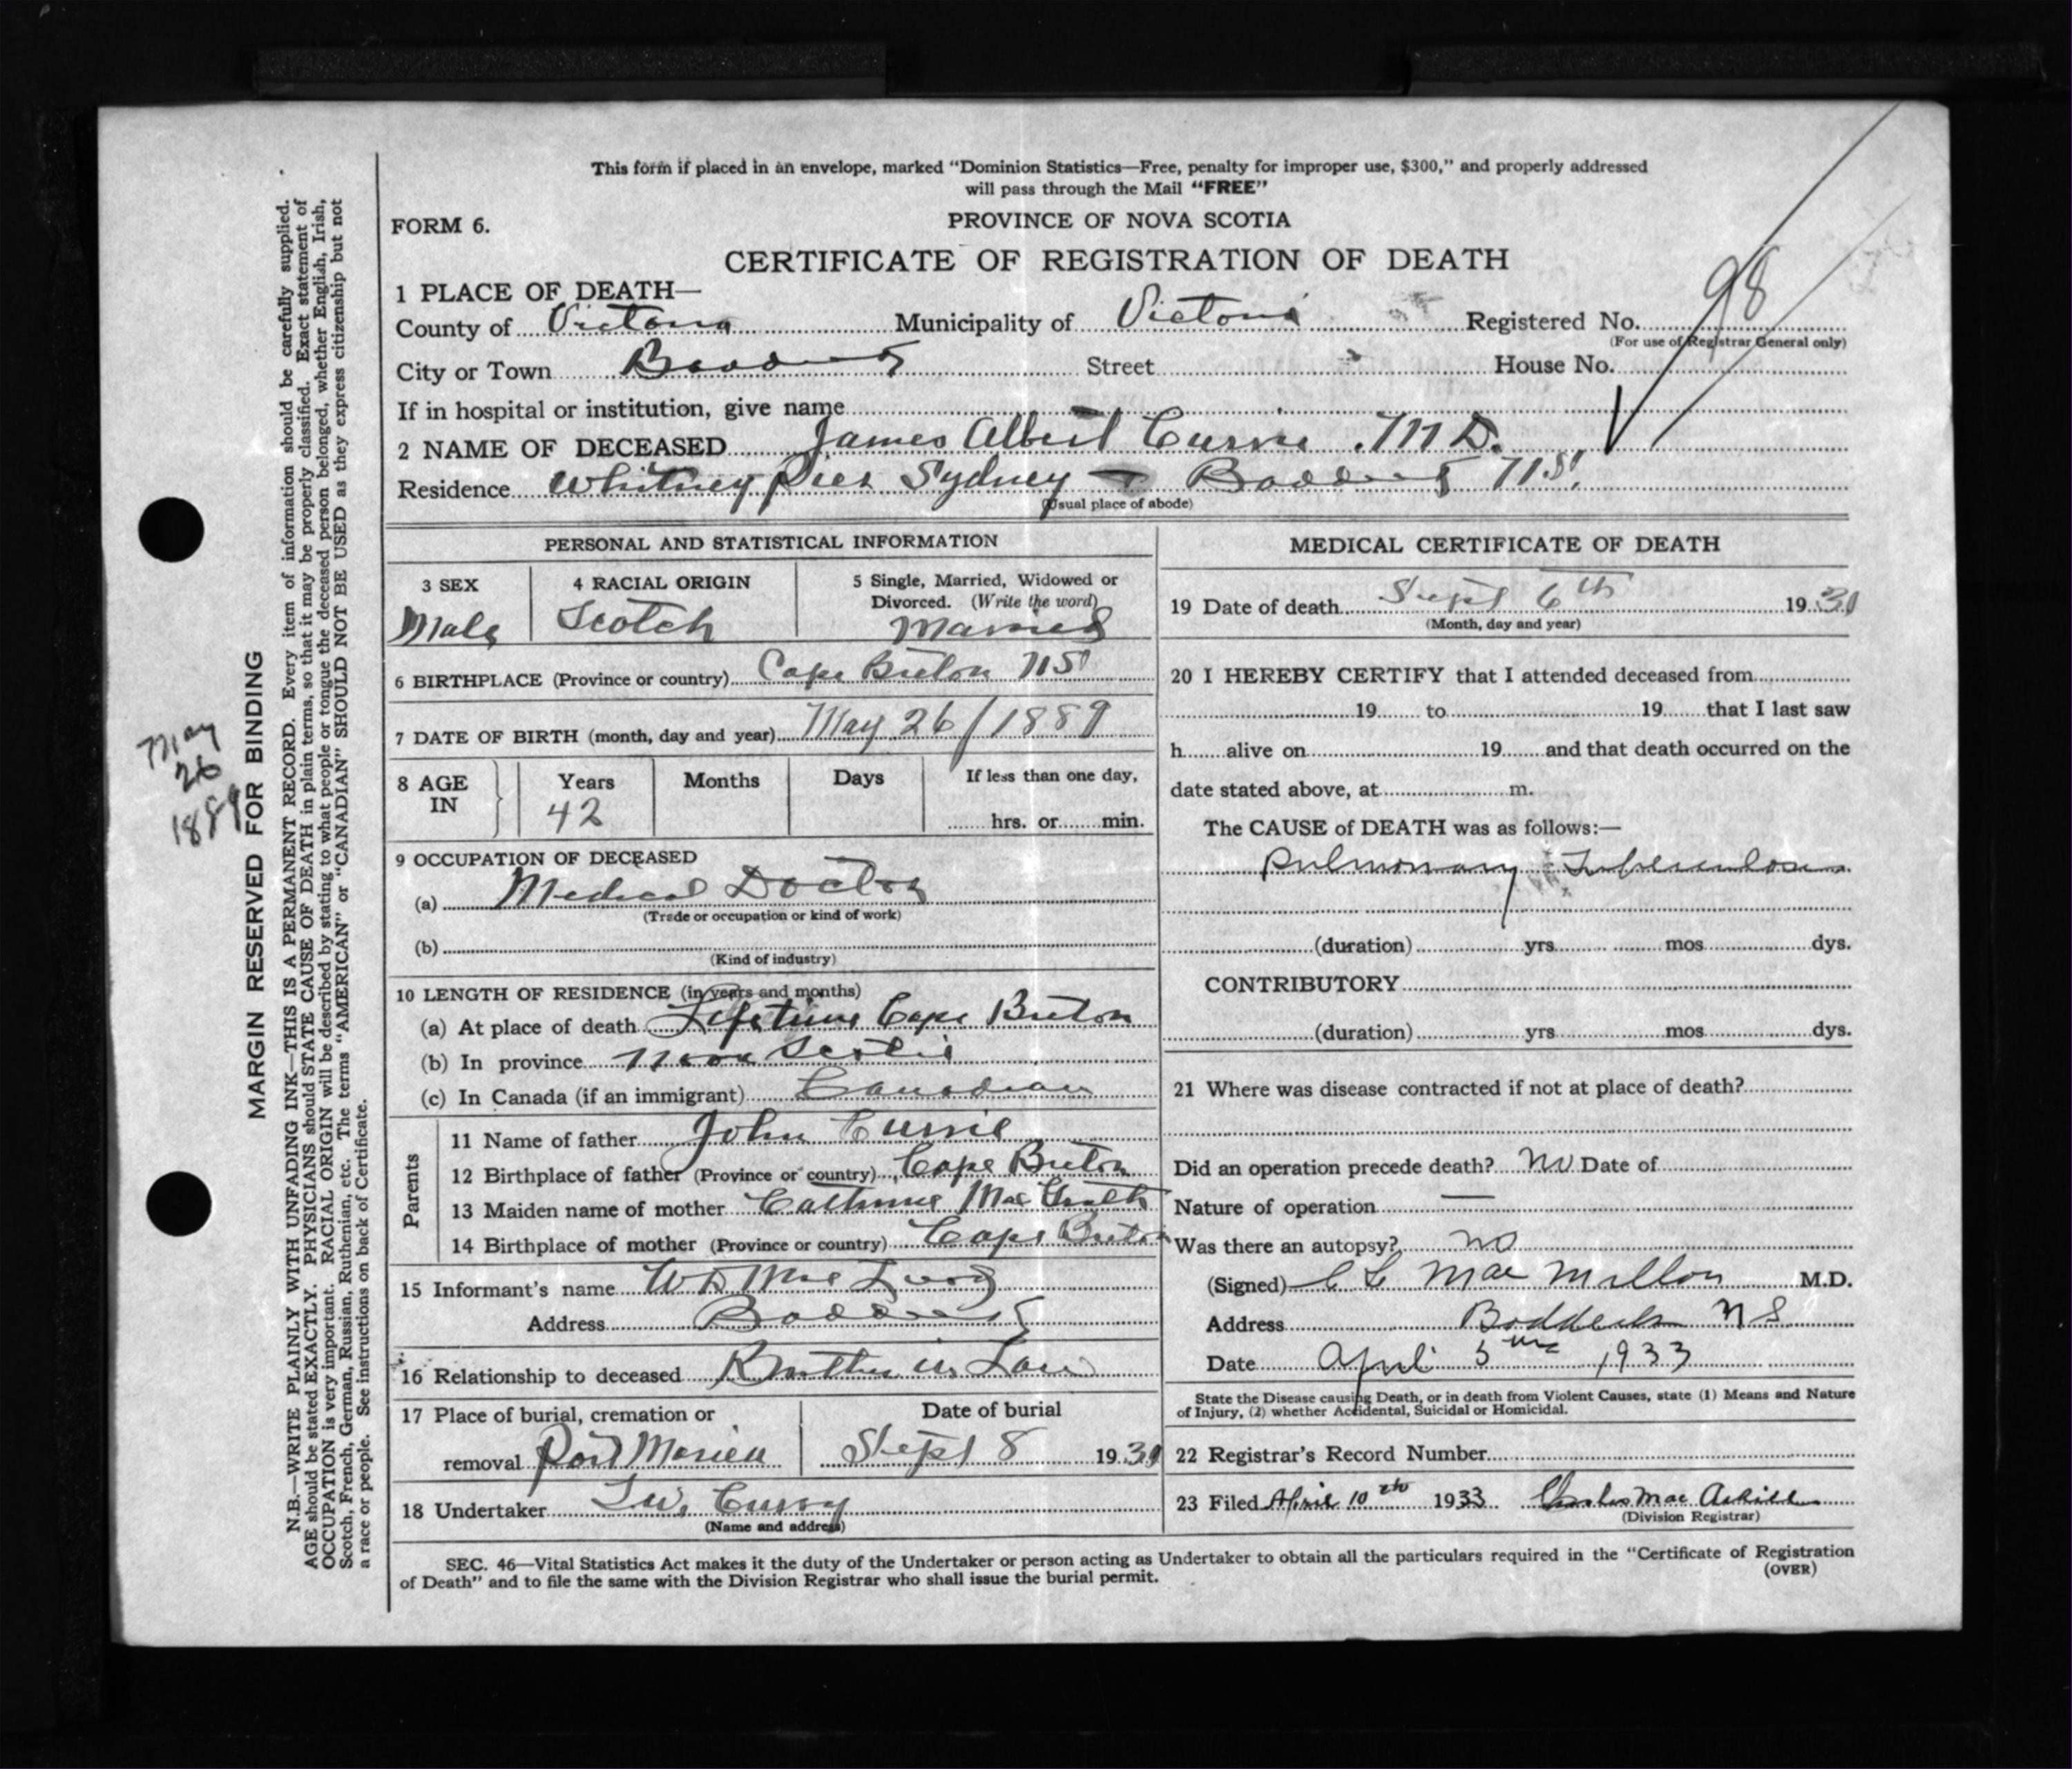 This form if placed in an envelope, marked “Dominion Statistics—Free, penalty for improper use, $300,” and properly addressed
will pass through the Mail “FREE”
FORM 6.
PROVINCE OF NOVA SCOTIA
CERTIFICATE OF REGISTRATION OF DEATH
1 PLACE OF DEATH—
County of Victoria Municipality of Victoria Registered No. 98
(For use of Registrar General only)
City or Town Street House No.
If in hospital or institution, give name
2 NAME OF DECEASED James Albert Currie . M D.
Residence Whitney Pier Sydney N S
(Usual place of abode)
PERSONAL AND STATISTICAL INFORMATION
3 SEX 4 RACIAL ORIGIN 5 Single, Married, Widowed or
Divorced. (Write the word)
Male Scotch Married
6 BIRTHPLACE (Province or country) Cape Breton N S
7 DATE OF BIRTH (month, day and year) May 26 / 1889
8 AGE IN Years Months Days If less than one day,
42 hrs. or min.
9 OCCUPATION OF DECEASED
(a) Medical Doctor
(Trade or occupation or kind of work)
(b)
(Kind of industry)
10 LENGTH OF RESIDENCE (in years and months)
(a) At place of death Lifetime Cape Breton
(b) In province Nova Scotia
(c) In Canada (if an immigrant) Canadian
Parents
11 Name of father John Currie
12 Birthplace of father (Province or country) Cape Breton
13 Maiden name of mother Mac
14 Birthplace of mother (Province or country) Cape Breton
15 Informant's name W D Mac
Address
16 Relationship to deceased Brother in Law
17 Place of burial, cremation or Date of burial
removal Port Morien Sept 8 1931
18 Undertaker
(Name and address)
MEDICAL CERTIFICATE OF DEATH
19 Date of death Sept 6th 1931
(Month, day and year)
20 I HEREBY CERTIFY that I attended deceased from
19 to 19 that I last saw
h alive on 19 and that death occurred on the
date stated above, at m.
The CAUSE of DEATH was as follows:—
Pulmonary Tuberculosis
(duration) yrs. mos. dys.
CONTRIBUTORY
(duration) yrs. mos. dys.
21 Where was disease contracted if not at place of death?
Did an operation precede death? no Date of
Nature of operation —
Was there an autopsy? no
(Signed) C L Mac Millon M.D.
Address Baddeck N S
Date April 5 1933
State the Disease causing Death, or in death from Violent Causes, state (1) Means and Nature
of Injury, (2) whether Accidental, Suicidal or Homicidal.
22 Registrar's Record Number
23 Filed April 10th 1933 Charles Mac
(Division Registrar)
SEC. 46—Vital Statistics Act makes it the duty of the Undertaker or person acting as Undertaker to obtain all the particulars required in the “Certificate of Registration
of Death” and to file the same with the Division Registrar who shall issue the burial permit.
(OVER)
May
26
1889
MARGIN RESERVED FOR BINDING
N.B.—WRITE PLAINLY WITH UNFADING INK—THIS IS A PERMANENT RECORD. Every item of information should be carefully supplied.
AGE should be stated EXACTLY. PHYSICIANS should STATE CAUSE OF DEATH in plain terms, so that it may be properly classified. Exact statement of
OCCUPATION is very important. RACIAL ORIGIN will be described by stating to what people or tongue the deceased person belonged, whether English, Irish,
Scotch, French, German, Russian, Ruthenian, etc. The terms “AMERICAN” or “CANADIAN” SHOULD NOT BE USED as they express citizenship but not
a race or people. See instructions on back of Certificate.